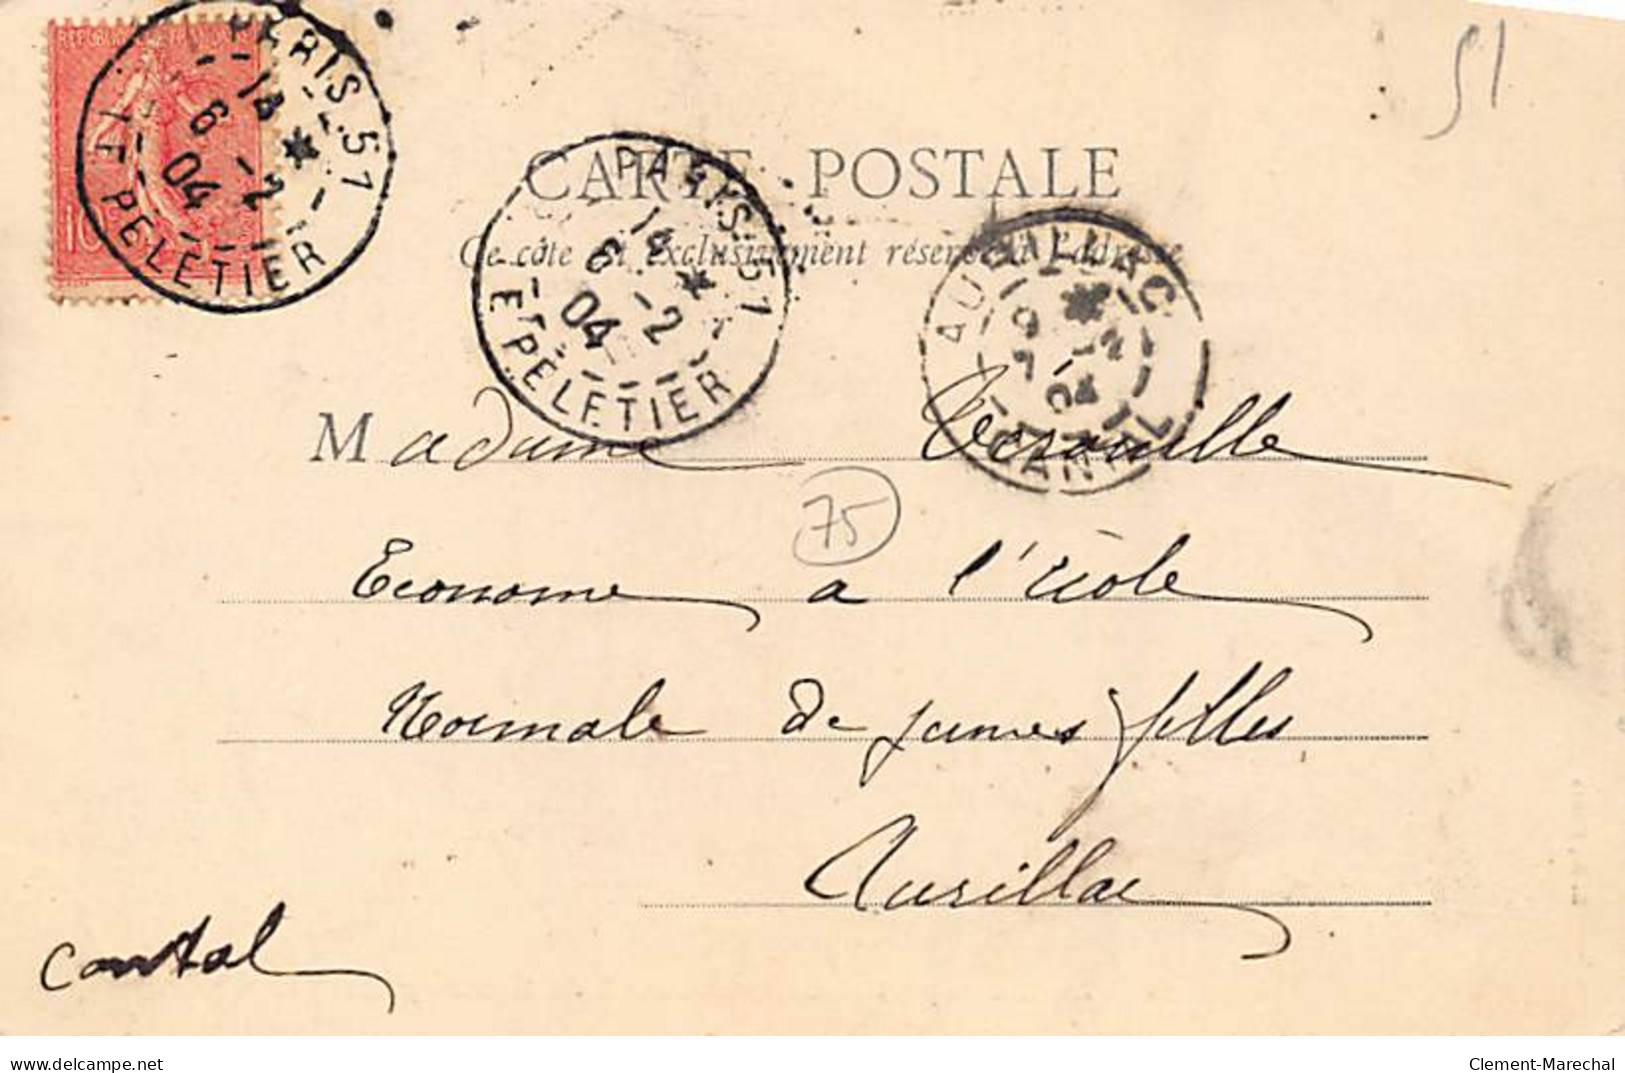 REPUBLIQUE FRANCAISE
10
PARIS 51
14
6 -2
04
R. LE PELETIER
51
CARTE POSTALE
Ce côté est exclusivement réservé à l'adresse
PARIS 51
14
6 -2
04
LE PELETIER
AURILLAC
CANTAL
Madame
75
Econome a l'école
Normale de jeunes filles
Aurillac
Cantal
delcampe.net
Clement-Marechal